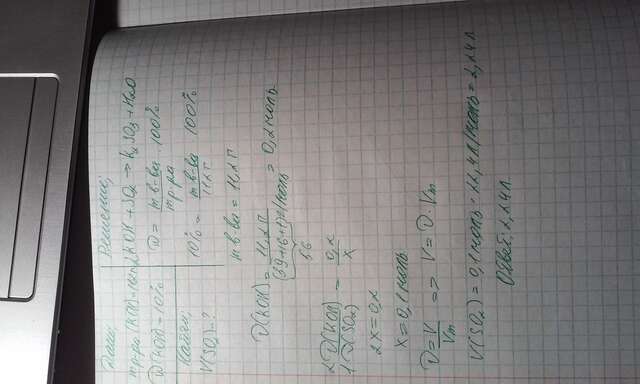 Дано:
mр-ра (KOH)=112г
ω(KOH)=10%
Найти:
V(SO₂)-?
Решение:
2KOH+SO₂ => K₂SO₃+H₂O
ω = m в-ва / mр-ра · 100%
10% = m в-ва / 112г · 100%
m в-ва = 11,2г
ν(KOH) = 11,2г / (39+16+1)г/моль = 0,2 моль
56
2ν(KOH) / 1ν(SO₂) = 0,2 / x
2x=0,2
x=0,1 моль
ν=V/Vm => V=ν·Vm
V(SO₂) = 0,1 моль · 22,4л/моль = 2,24л
Ответ: 2,24л.